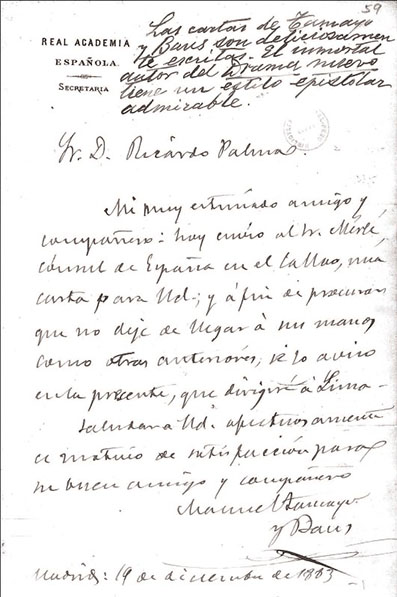 59
REAL ACADEMIA
ESPAÑOLA.
SECRETARIA
Las cartas de Tamayo
y Baus son deliciosamen
te escritas. El inmortal
autor del Drama nuevo
tiene un estilo epistolar
admirable.
Sr. D. Ricardo Palma.
Mi muy estimado amigo y
compañero: hoy envío al Sr. Merlé,
cónsul de España en el Callao, una
carta para Ud.; y á fin de procurar
que no deje de llegar á sus manos
como otras anteriores, se lo aviso
en la presente, que dirigiré á Lima.
Saludar a Ud. afectuosamente
es motivo de satisfacción para
su buen amigo y compañero
Manuel Tamayo
y Baus
Madrid: 19 de diciembre de 1883